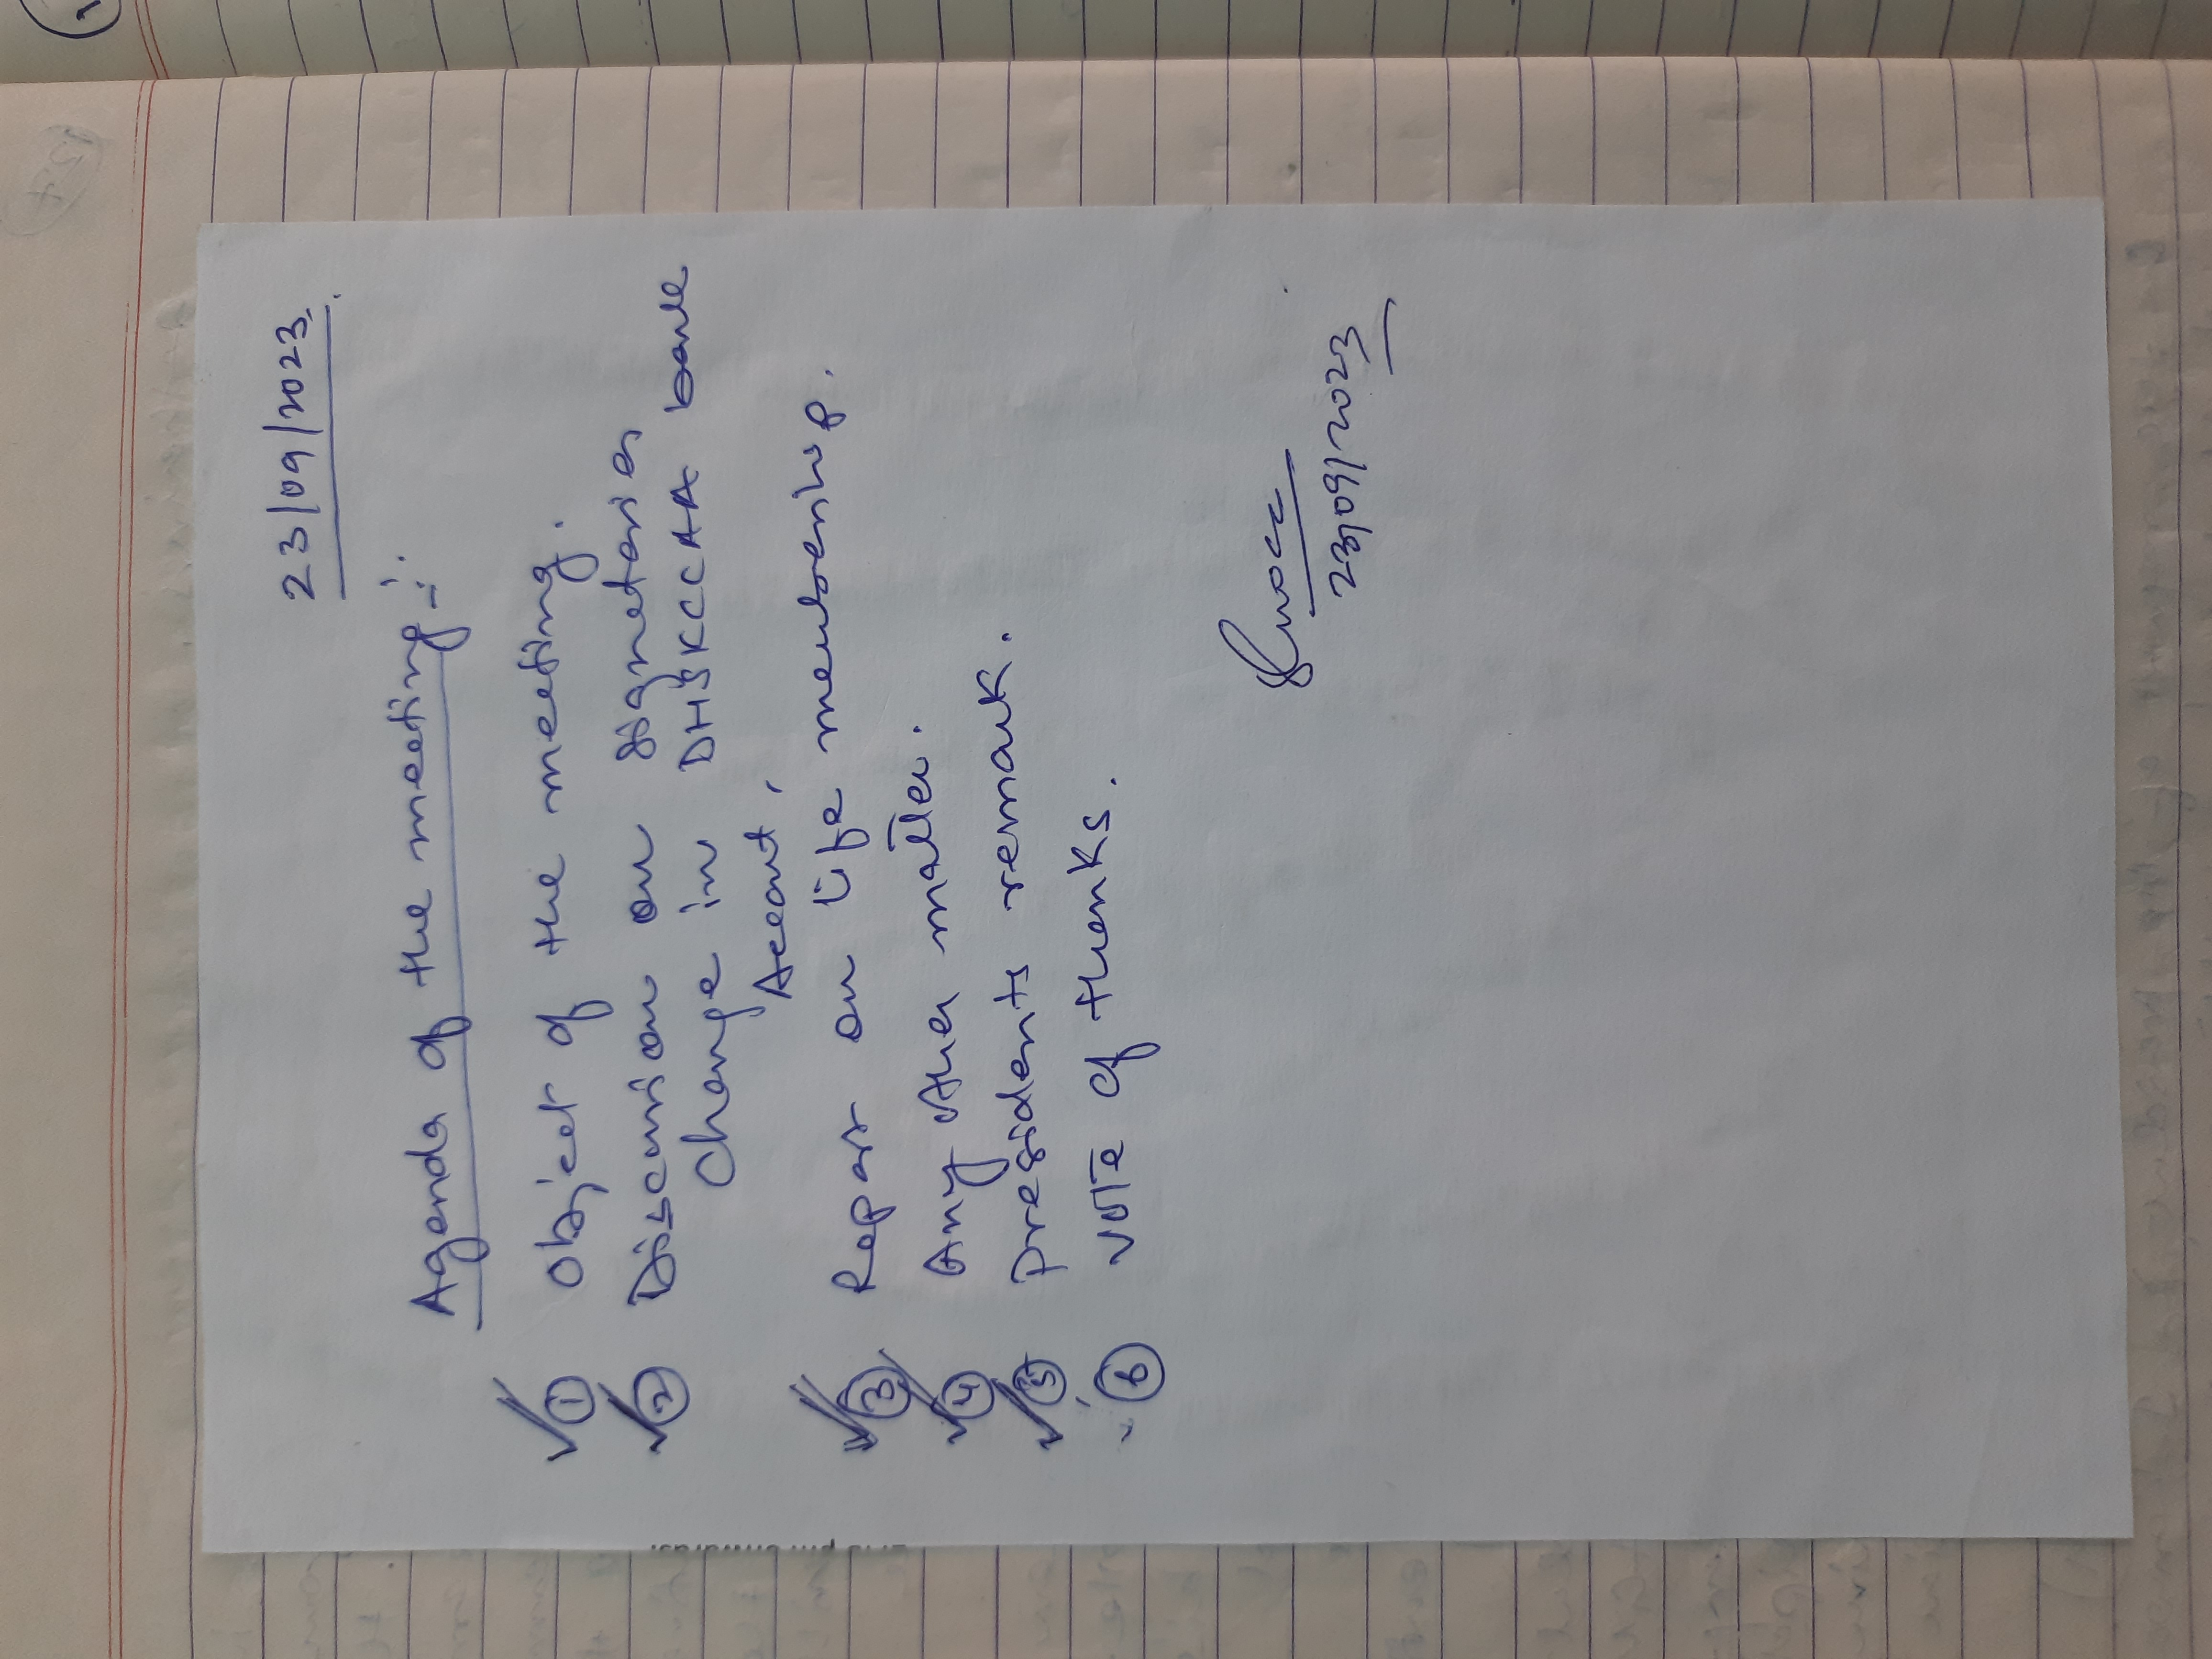 23/09/2023.
Agenda of the meeting :-
① Object of the meeting.
② Discussion on signatories
change in DHSKCCAA bank
Account.
③ Report on life membership.
④ Any other matter.
⑤ Presidents remark.
⑥ vote of thanks.
23/09/2023